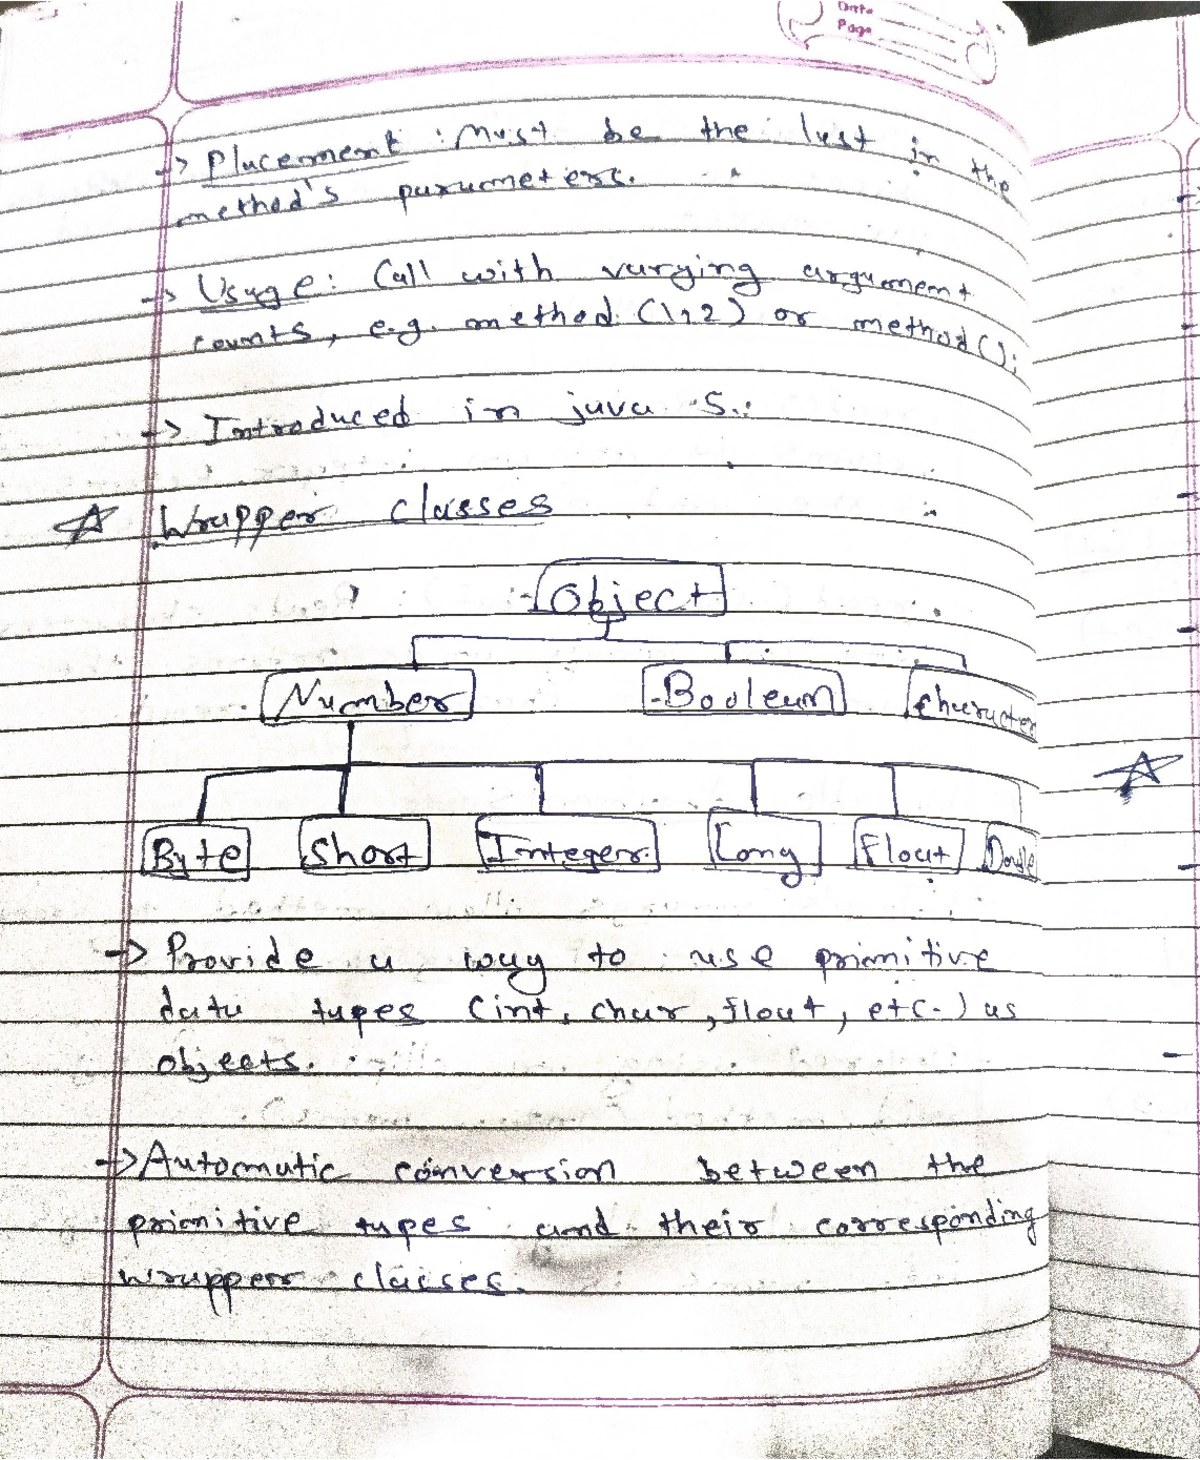 Date
Page
-> Placement : Must be the last in the
method's parameters.
-> Usage : Call with varying argument
counts, e.g. method (1,2) or method();
-> Introduced in java 5.
☆ Wrapper classes
Object
Number Boolean Character
Byte Short Integer Long Float Double
-> Provide a way to use primitive
data types (int, char, float, etc.) as
objects.
-> Automatic conversion between the
primitive types and their corresponding
wrapper classes.
☆